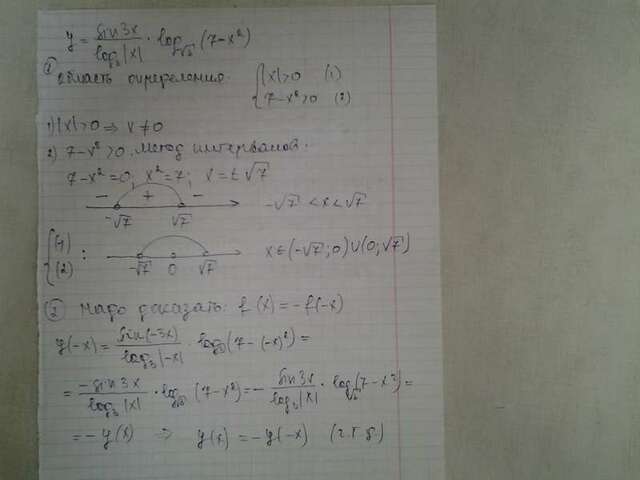 y = sin 3x / log₃|x| · log_√2 (7-x²)
① область определения. { |x|>0 (1)
7-x²>0 (2)
1) |x|>0 ⇒ x≠0
2) 7-x²>0, метод интервалов.
7-x²=0; x²=7; x=±√7
- + -
-√7 √7 -√7 < x < √7
{ (1) (2) : -√7 0 √7 x∈(-√7;0)∪(0;√7)
② надо доказать: f(x)=-f(-x)
y(-x) = sin(-3x) / log₃|-x| · log_√2 (7-(-x)²) =
= -sin 3x / log₃|x| · log_√2 (7-x²) = - sin 3x / log₃|x| · log_√2 (7-x²) =
= -y(x) ⇒ y(x) = -y(-x) (ч.т.д.)